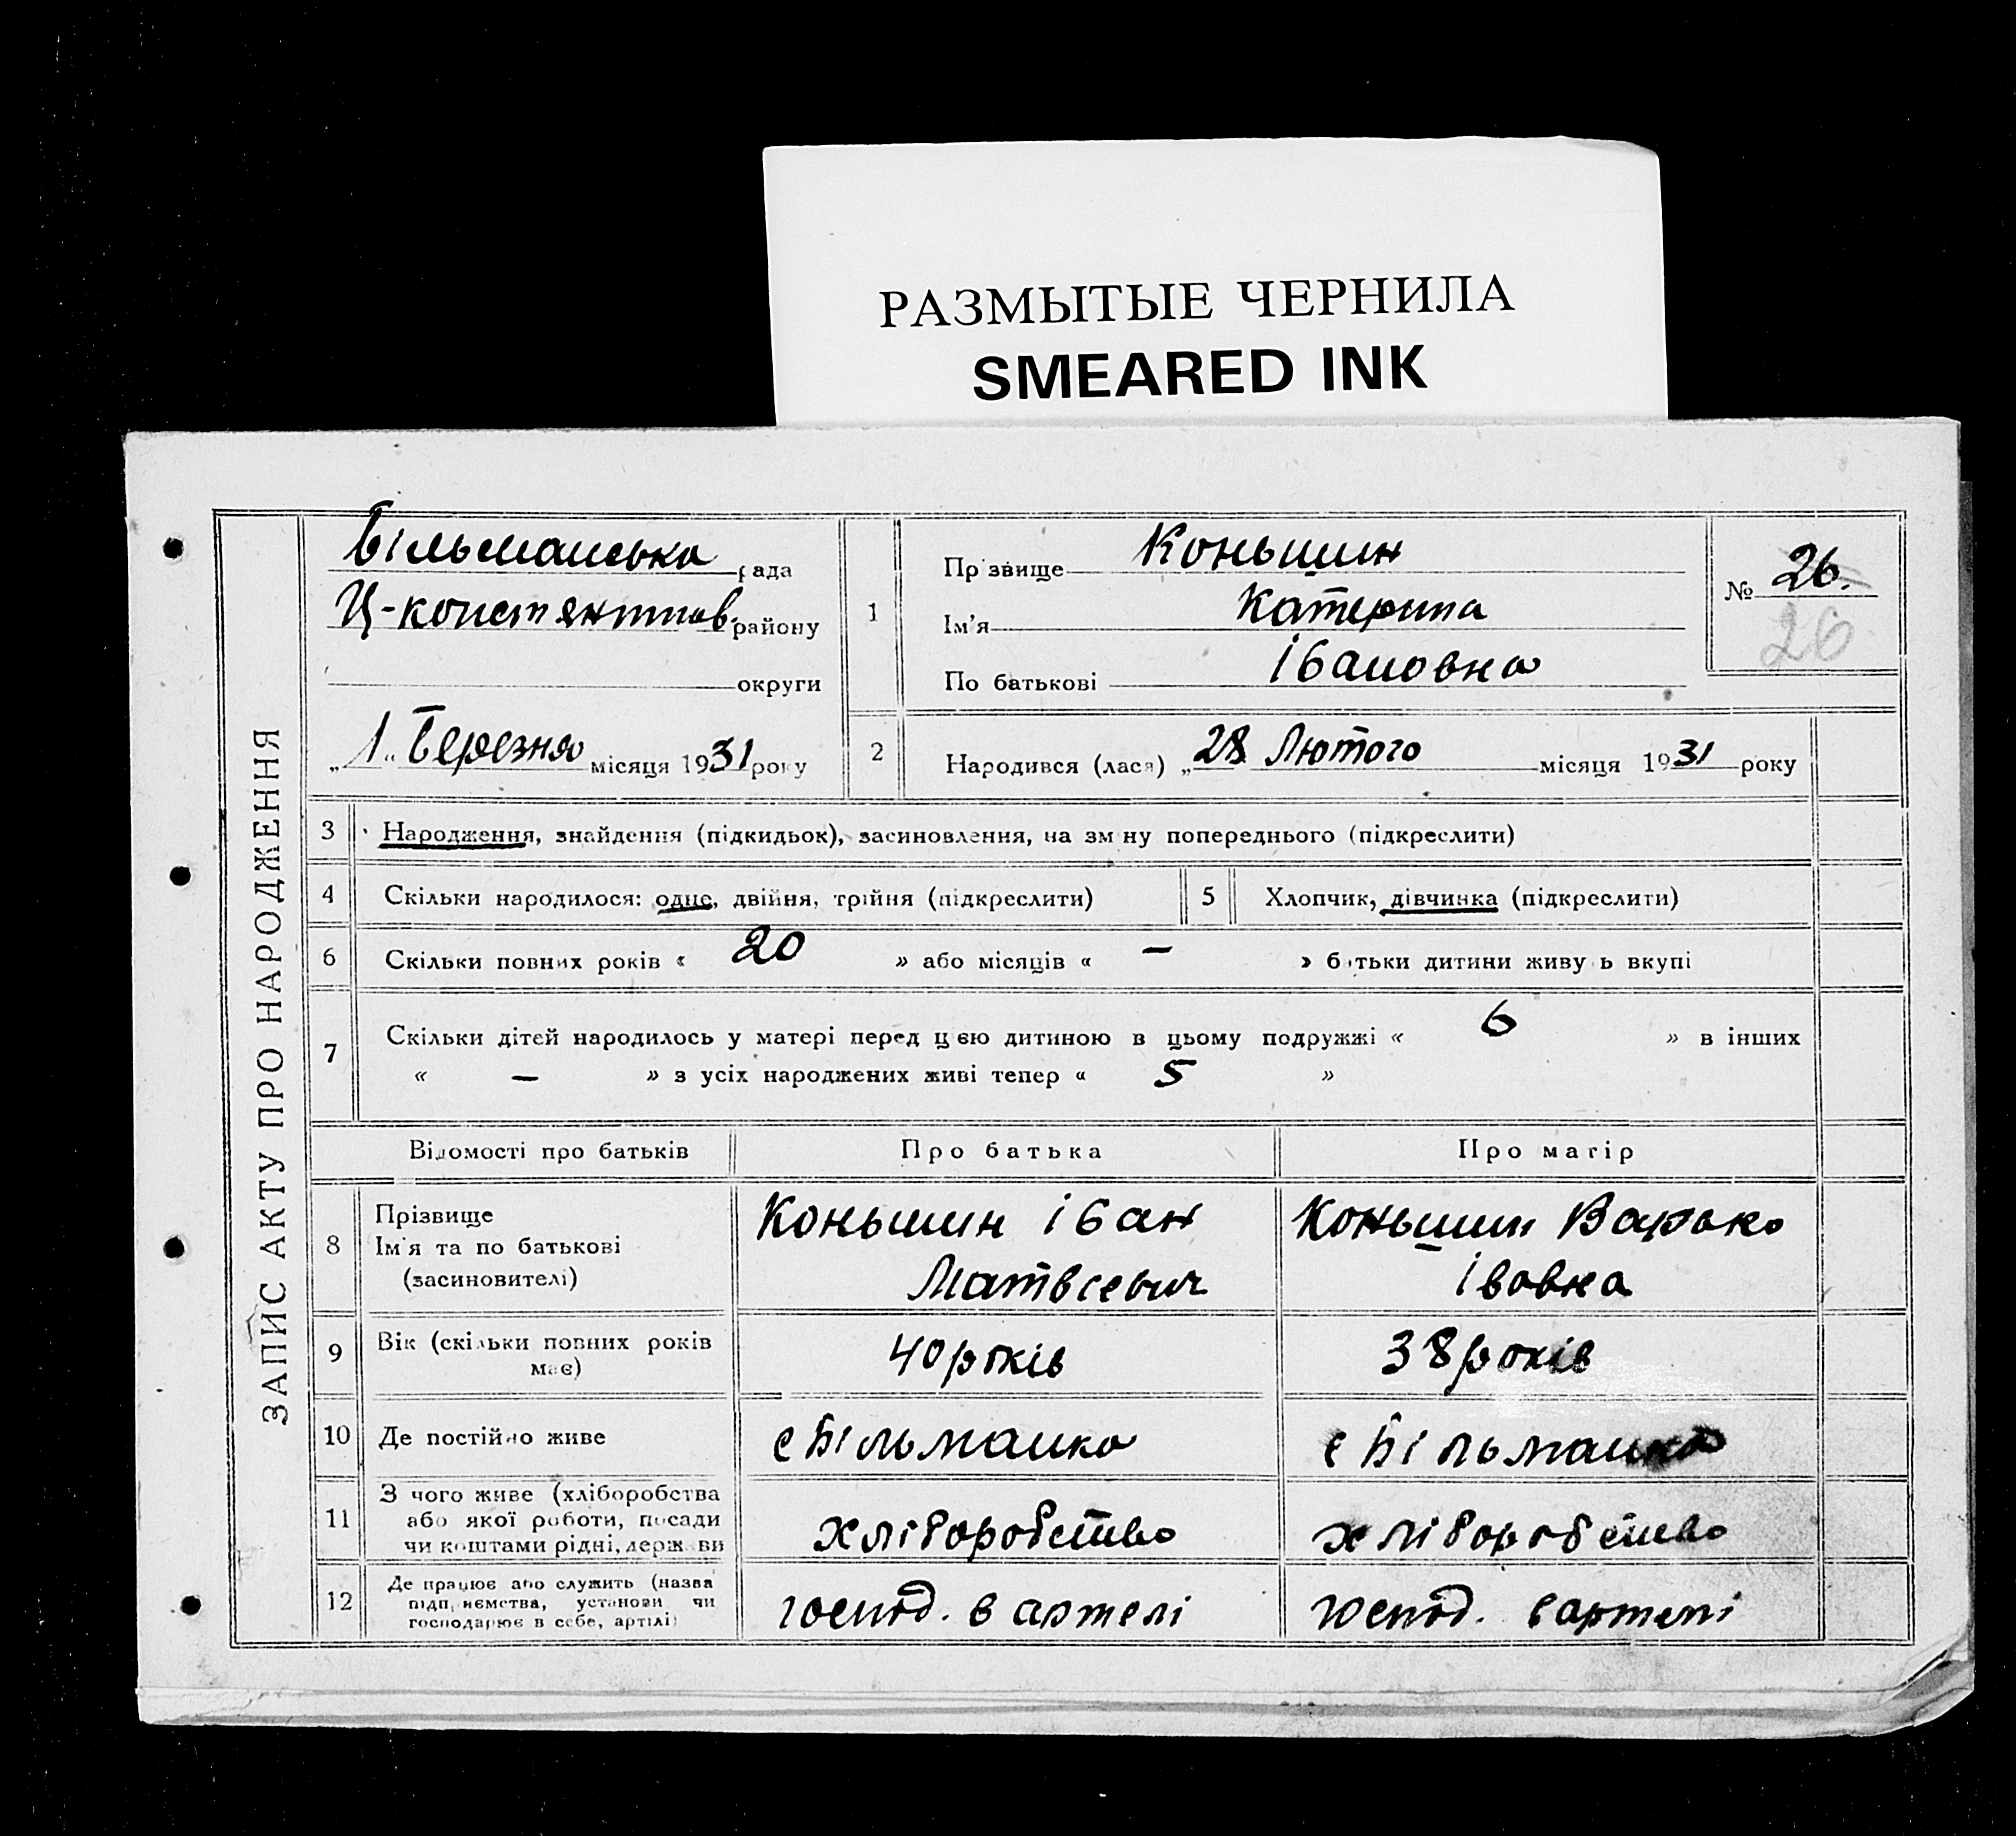 РАЗМЫТЫЕ ЧЕРНИЛА
SMEARED INK
ЗАПИС АКТУ ПРО НАРОДЖЕННЯ
Більманська рада
Ц-констянтинов. району
округи
„1“ Березня місяця 1931 року
1
Прізвище Коньшин
Ім'я Катерина
По батькові Івановна
№ 26.
26
2 Народився (лася) „28 Лютого місяця 1931 року
3 Народження, знайдення (підкидьок), засиновлення, на зміну попереднього (підкреслити)
4 Скільки народилося: одне, двійня, трійня (підкреслити)
5 Хлопчик, дівчинка (підкреслити)
6 Скільки повних років « 20 » або місяців « — » батьки дитини живуть вкупі
7 Скільки дітей народилось у матері перед цією дитиною в цьому подружжі « 6 » в інших
« — » з усіх народжених живі тепер « 5 »
Відомості про батьків Про батька Про матір
8 Прізвище
Ім'я та по батькові
(засиновителі)
Коньшин Іван
Матвієвич
Коньшин Варька
Івовна
9 Вік (скільки повних років
має)
40 років
38 років
10 Де постійно живе
с Більманка
с Більманка
11 З чого живе (хліборобства
або якої роботи, посади
чи коштами рідні, держави
хліборобство
хліборобство
12 Де працює або служить (назва
підприємства, установи чи
господарює в себе, артілі)
господ. в артелі
господ. в артелі